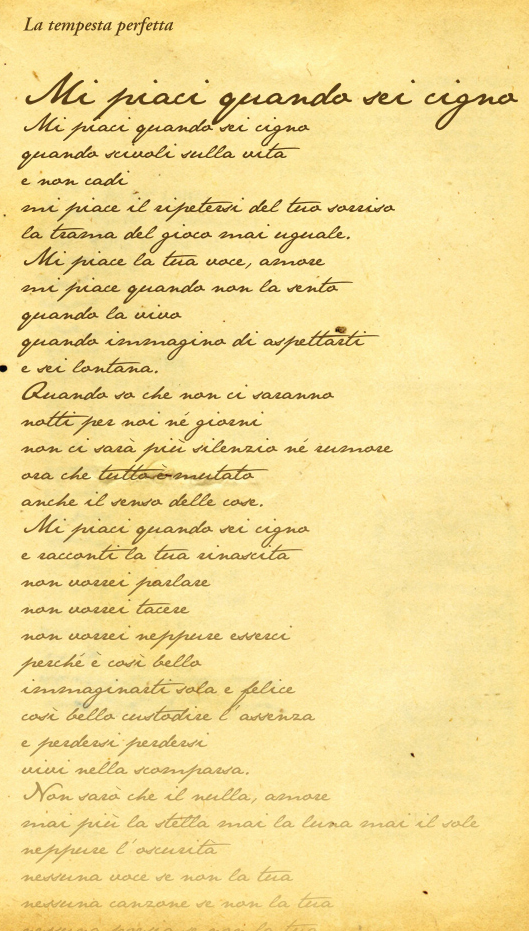 La tempesta perfetta
Mi piaci quando sei cigno
Mi piaci quando sei cigno
quando scivoli sulla vita
e non cadi
mi piace il ripetersi del tuo sorriso
la trama del gioco mai uguale.
Mi piace la tua voce, amore
mi piace quando non la sento
quando la vivo
quando immagino di aspettarti
e sei lontana.
Quando so che non ci saranno
notti per noi né giorni
non ci sarà più silenzio né rumore
ora che tutto è mutato
anche il senso delle cose.
Mi piaci quando sei cigno
e racconti la tua rinascita
non vorrei parlare
non vorrei tacere
non vorrei neppure esserci
perché è così bello
immaginarti sola e felice
così bello custodire l'assenza
e perdersi perdersi
vivi nella scomparsa.
Non sarò che il nulla, amore
mai più la stella mai la luna mai il sole
neppure l'oscurità
nessuna voce se non la tua
nessuna canzone se non la tua